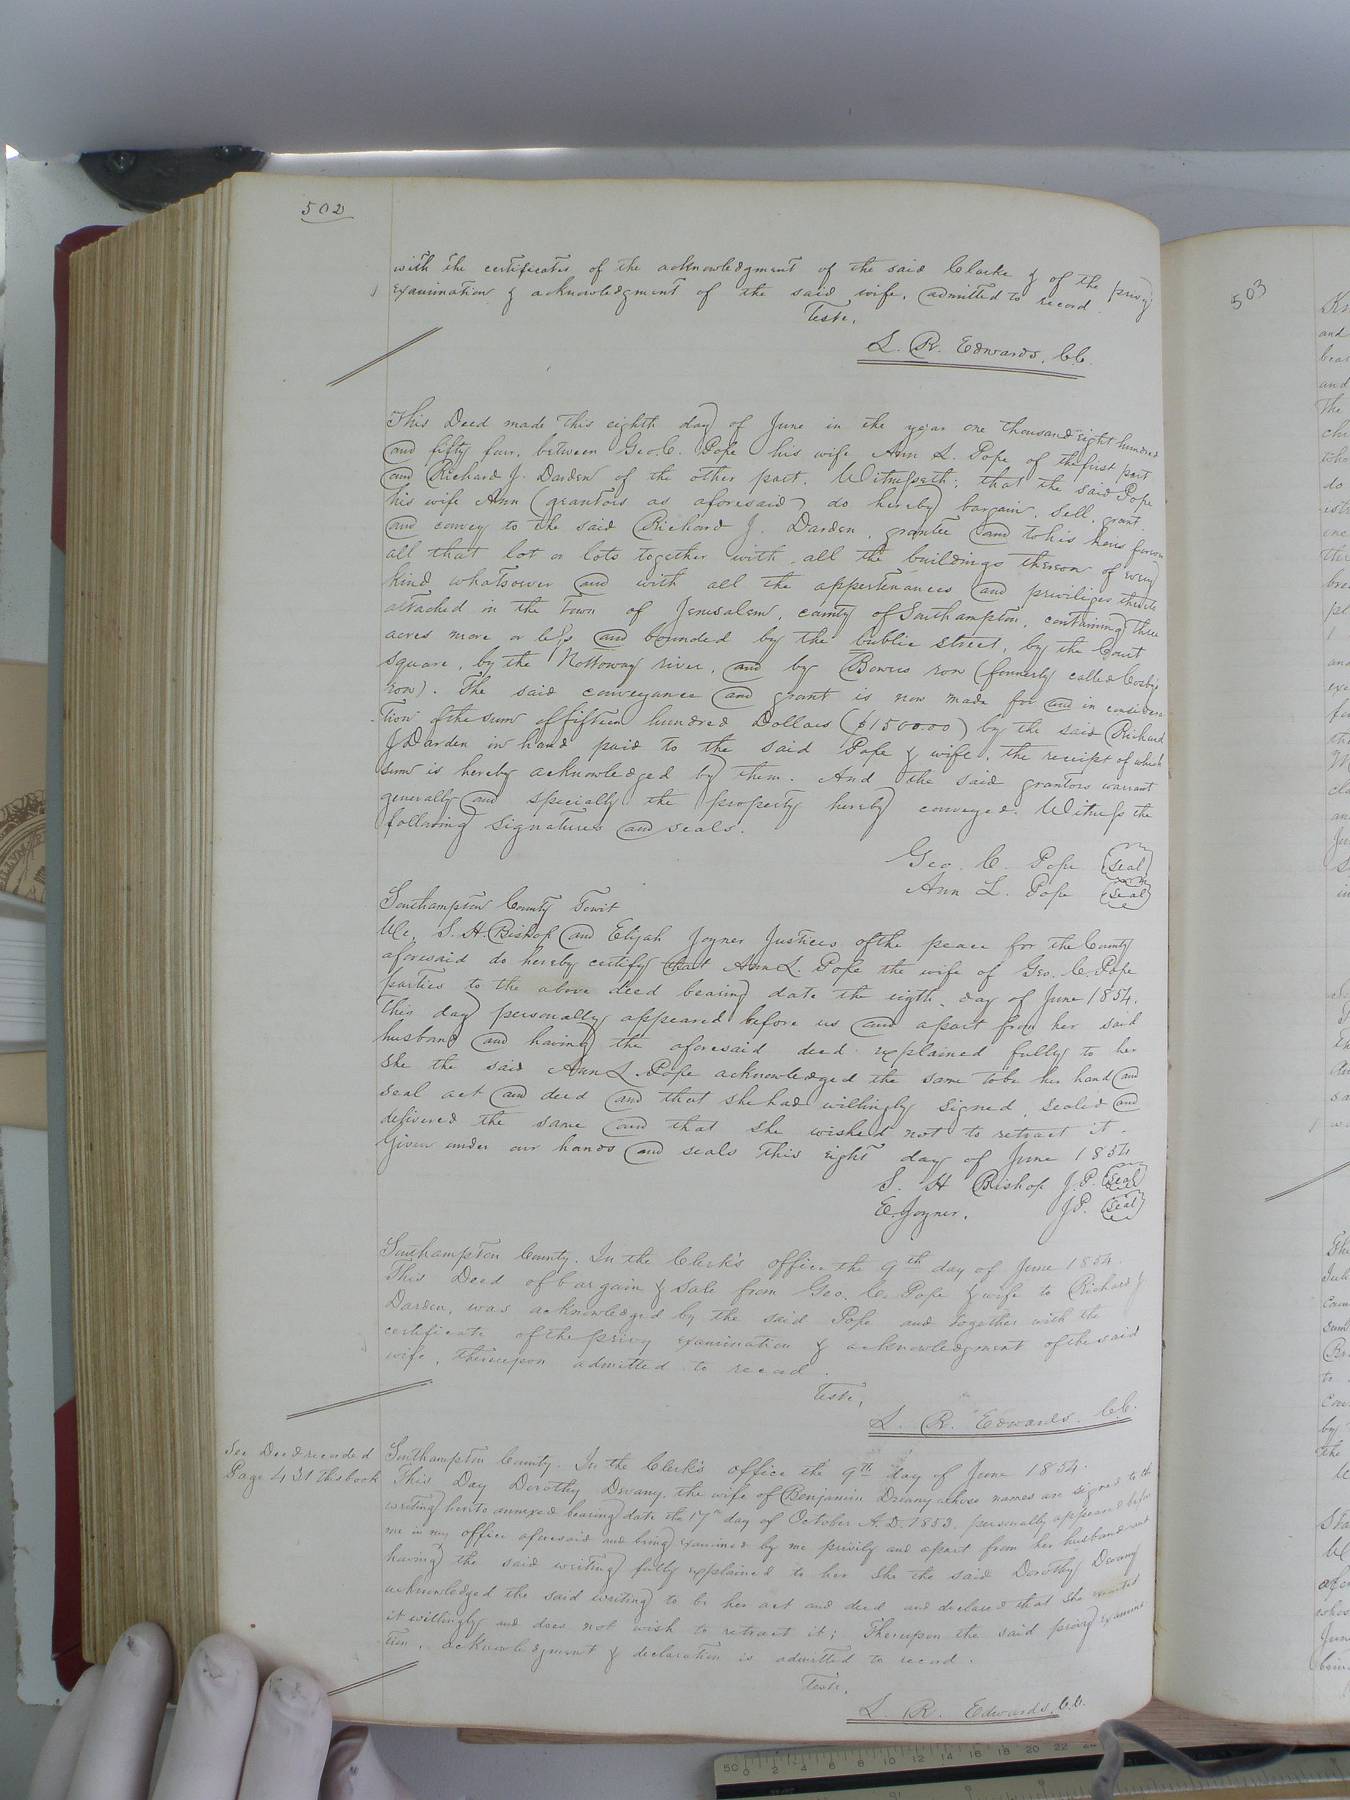 502
with the certificates of the acknowledgment of the said Clarke & of the privy
examination & acknowledgment of the said wife, admitted to record.
Teste,
L. R. Edwards. C.C.
This Deed made this eighth day of June in the year one thousand eight hundred
and fifty four, between Geo. C. Pope his wife Ann L. Pope of the first part
and Richard J. Darden of the other part. Witnesseth; that the said Pope
his wife Ann (grantors as aforesaid) do hereby bargain, sell, grant
and convey to the said Richard J. Darden, grantee and to his heirs forever
all that lot or lots together with all the buildings thereon of every
kind whatsoever and with all the appertenances and priviliges thereto
attached in the Town of Jerusalem, county of Southampton, containing three
acres more or less and bounded by the public street, by the Court
square, by the Nottoway river, and by Bowers row (formerly called Cosbys
row). The said conveyance and grant is now made for and in considera-
-tion of the sum of fifteen hundred Dollars ($1500.00) by the said Richard
J Darden in hand paid to the said Pope & wife, the receipt of which
sum is hereby acknowledged by them. And the said grantors warrant
generally and specially the property hereby conveyed. Witness the
following signatures and seals.
Geo. C. Pope (seal)
Ann L. Pope (seal)
Southampton County Towit
We, S. H. Bishop and Elijah Joyner Justices of the peace for the County
aforesaid do hereby certify that Ann L. Pope the wife of Geo. C. Pope
parties to the above deed bearing date the eigth day of June 1854.
this day personally appeared before us and apart from her said
husband and having the aforesaid deed explained fully to her
she the said Ann L. Pope acknowledged the same to be her hand and
seal act and deed and that she had willingly signed, sealed and
delivered the same and that she wished not to retract it.
Given under our hands and seals this eight day of June 1854
S. H Bishop J.P. (seal)
E. Joyner, J.P. (seal)
Southampton County. In the Clerk's office the 9th day of June 1854.
This Deed of bargain & sale from Geo. C. Pope & wife to Richard J
Darden, was acknowledged by the said Pope and together with the
certificate of the privy examination & acknowledgment of the said
wife, thereupon admitted to record.
Teste,
L. R. Edwards. C.C.
See Deed recorded
Page 431 this book
Southampton County. In the Clerk's office the 9th day of June 1854.
This Day Dorothy Drewry, the wife of Benjamin Drewry whose names are signed to the
writing hereto annexed bearing date the 17th day of October A.D. 1853, personally appeared before
me in my office aforesaid and being examined by me privily and apart from her husband and
having the said writing fully explained to her she the said Dorothy Drewry
acknowledged the said writing to be her act and deed and declared that she executed
it willingly and does not wish to retract it; Thereupon the said privy examina-
tion, acknowledgment & declaration is admitted to record.
Teste,
L. R. Edwards. C.C.
503
50 0 2 4 6 8 10 12 14 16 18 20 22